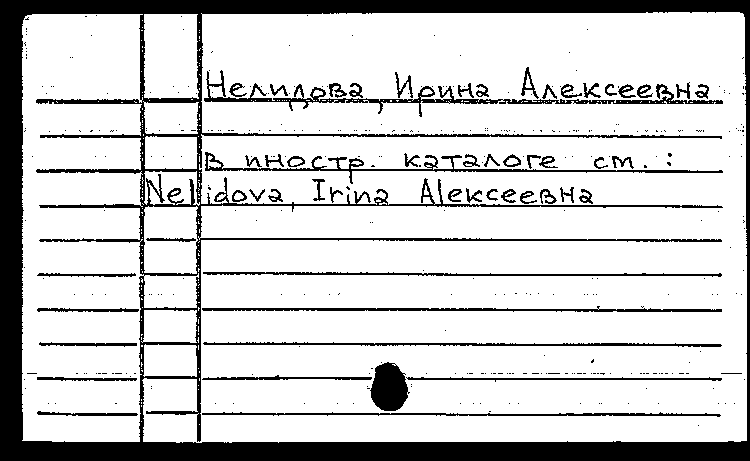 Нелидова, Ирина Алексеевна
в иностр. каталоге см.:
Nelidova, Irina Alекceeвна